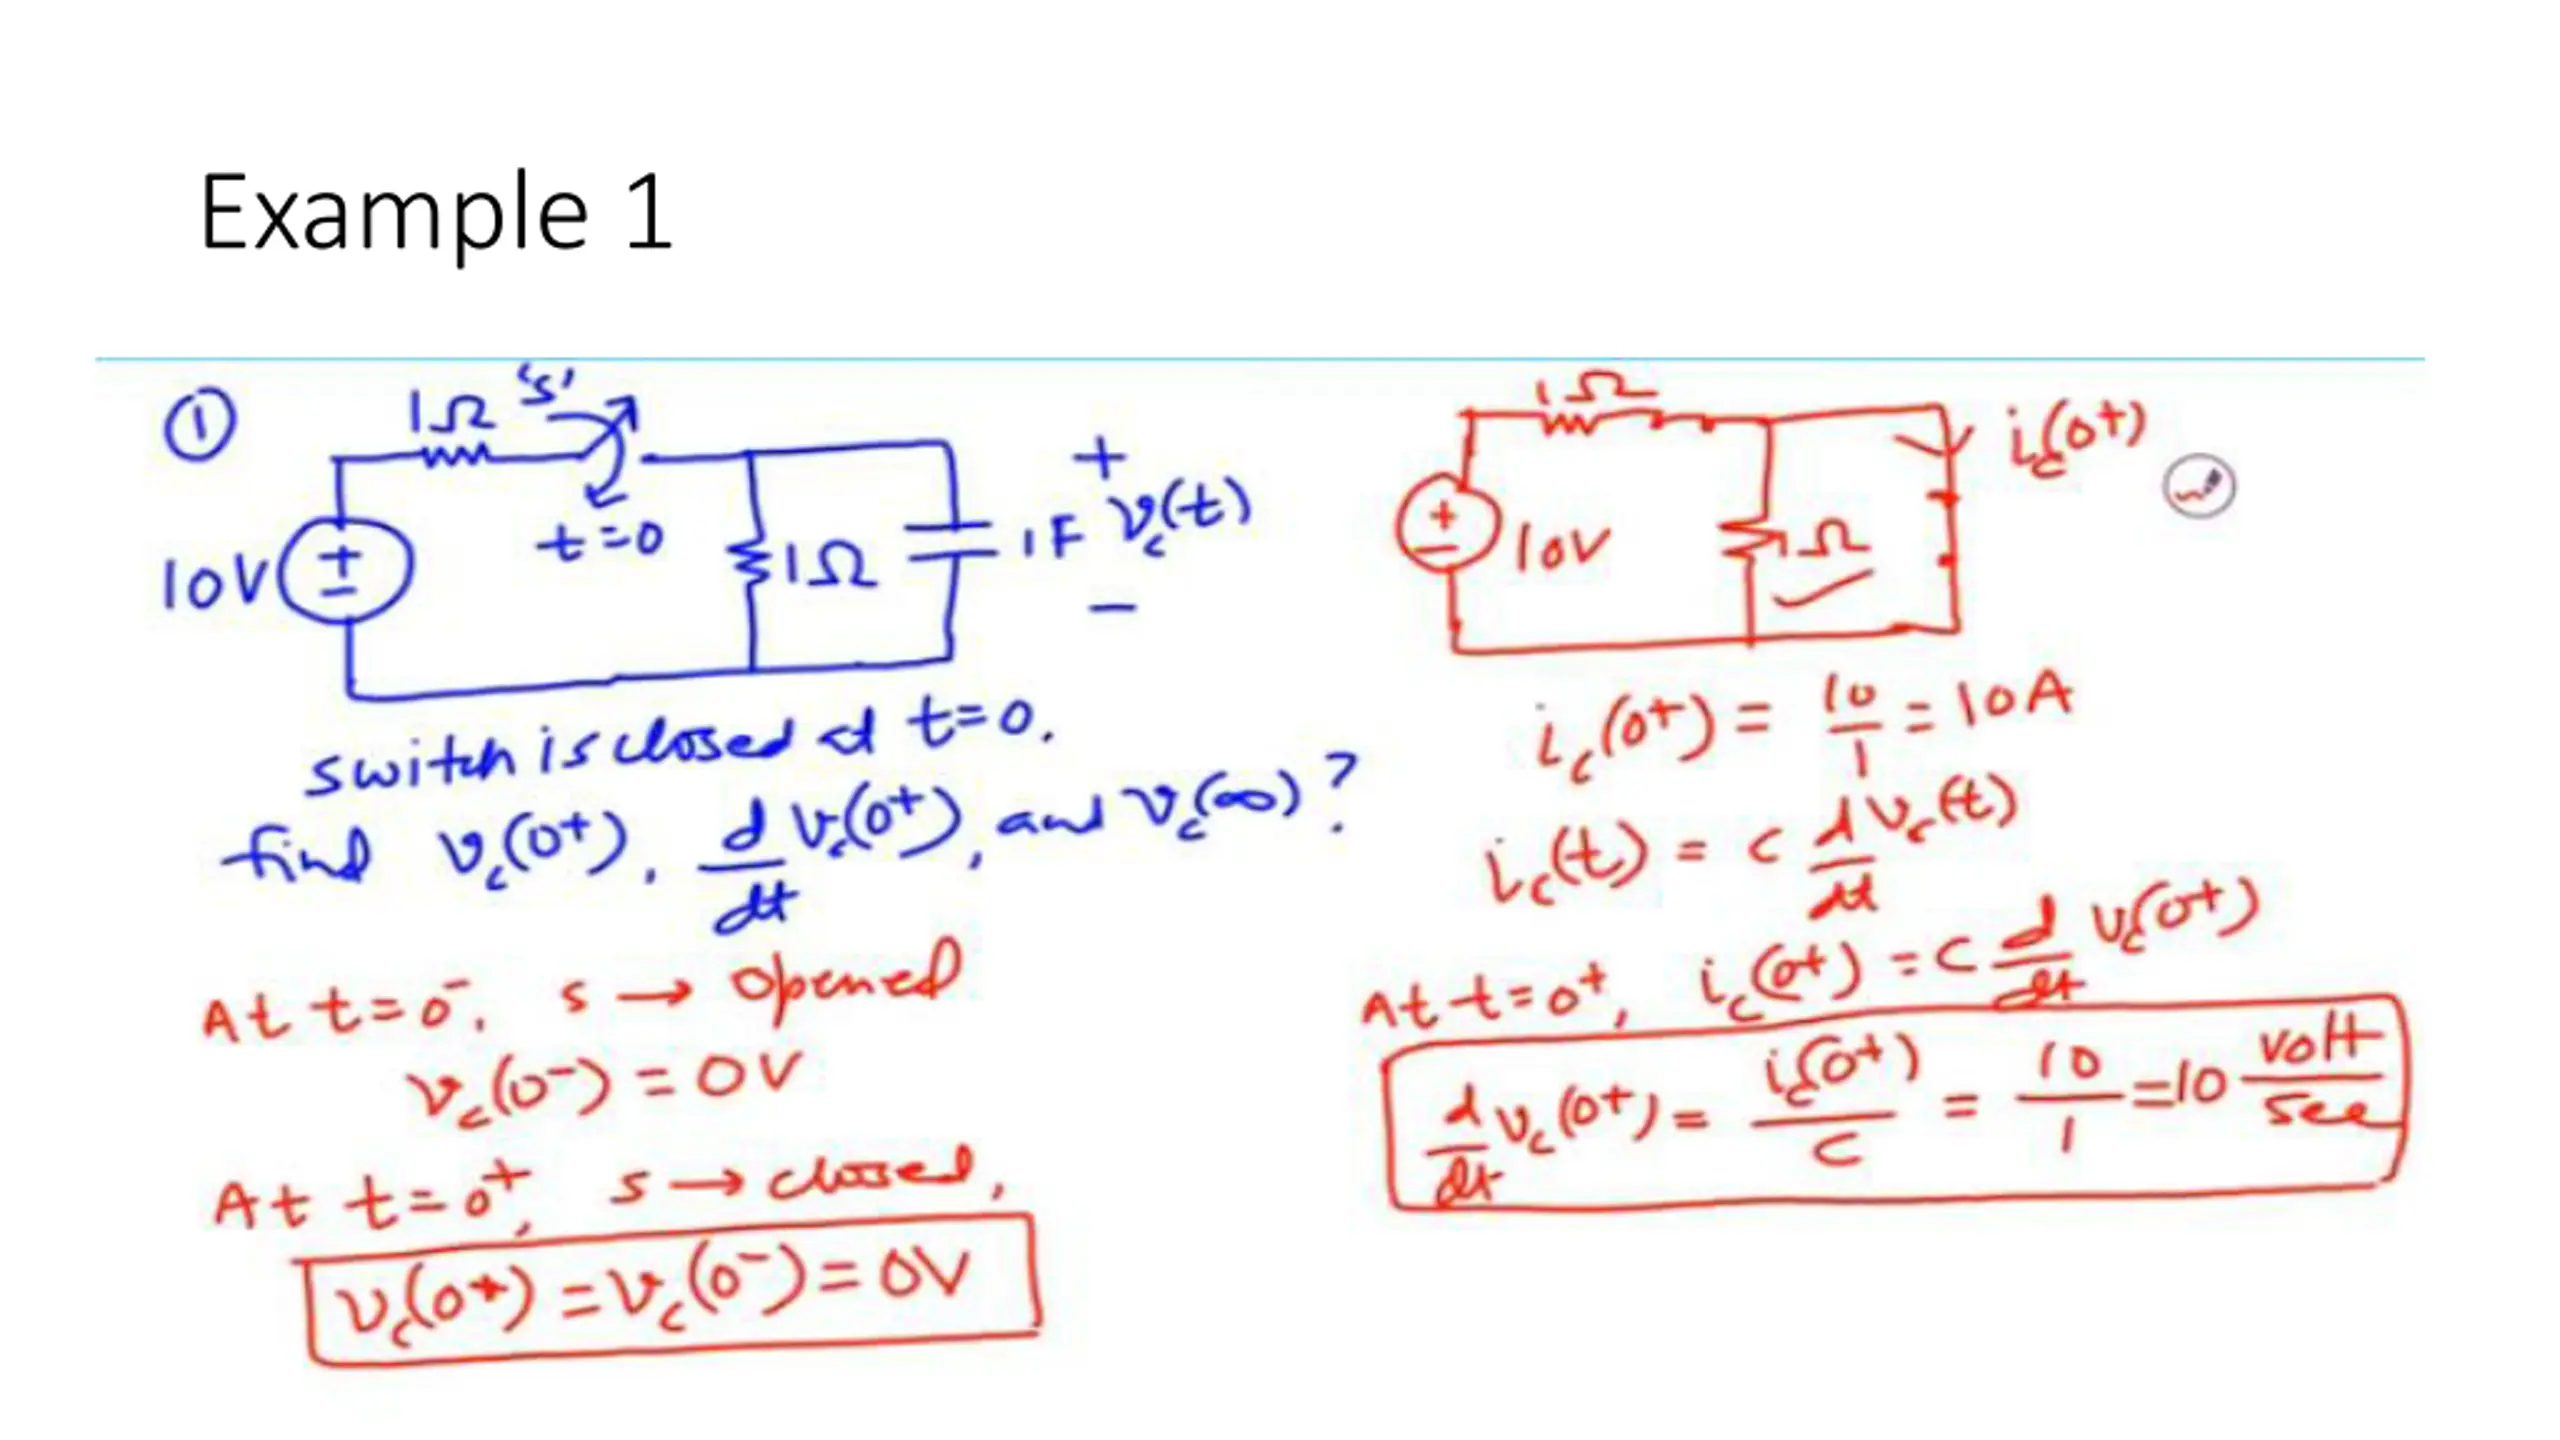 Example 1
①
1Ω 's'
t=0
10V
+
−
1Ω
1F
+
v_c(t)
−
switch is closed at t=0.
find v_c(0⁺), d/dt v_c(0⁺), and v_c(∞)?
At t=0⁻, s → opened
v_c(0⁻) = 0V
At t=0⁺, s → closed,
v_c(0⁺) = v_c(0⁻) = 0V
1Ω
i_c(0⁺)
+
−
10V
1Ω
i_c(0⁺) = 10/1 = 10A
i_c(t) = c d/dt v_c(t)
At t=0⁺, i_c(0⁺) = c d/dt v_c(0⁺)
d/dt v_c(0⁺) = i_c(0⁺)/c = 10/1 = 10 volt/sec